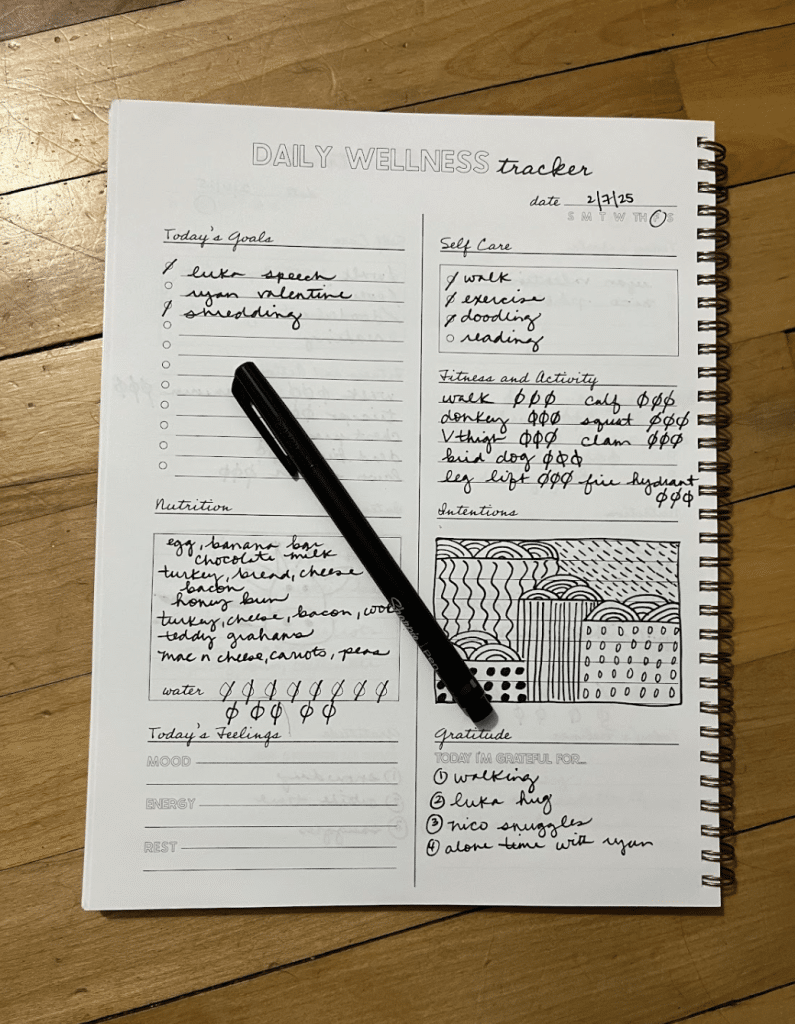 DAILY WELLNESS tracker
date 2/7/25
S M T W TH F S
Today's Goals
luka speech
ryan valentine
shredding
Nutrition
egg, banana bar
chocolate milk
turkey, bread, cheese
bacon
honey bun
turkey, cheese, bacon,
teddy grahams
mac n cheese, carrots, peas
water
Today's Feelings
MOOD
ENERGY
REST
Self Care
walk
exercise
doodling
reading
Fitness and Activity
walk calf
donkey squat
V thigh clam
bird dog
leg lift fire hydrant
Intentions
Gratitude
TODAY I'M GRATEFUL FOR...
1 walking
2 luka hug
3 nico snuggles
4 alone time with ryan